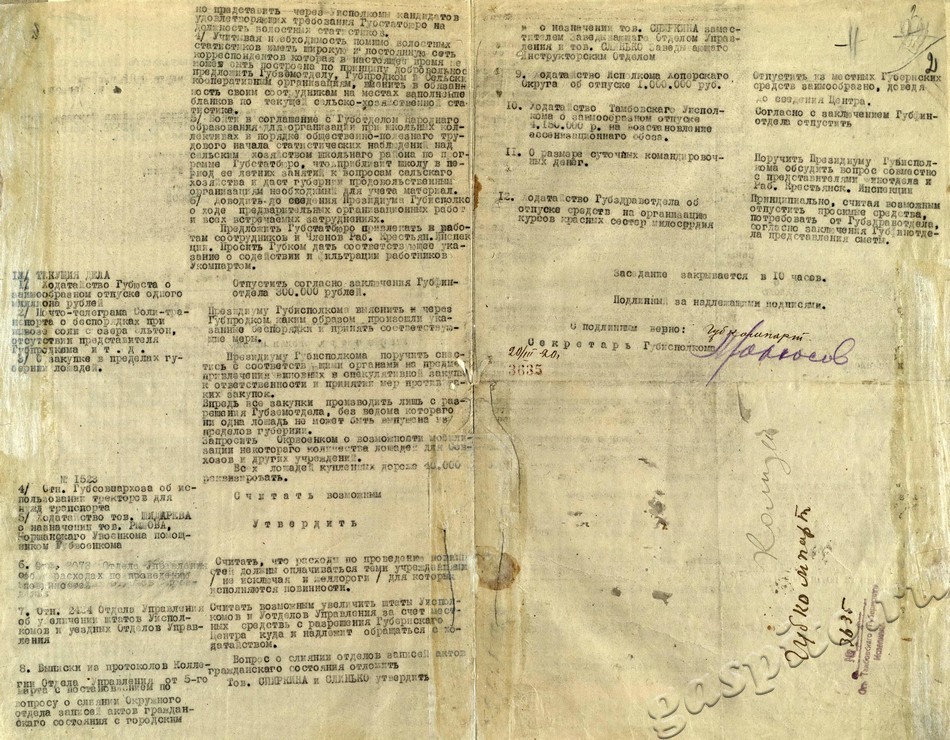 но представить через Уисполкомы кандидатов
удовлетворяющих требования Губстатбюро на
должность волостных статистиков.
4/ Учитывая необходимость помимо волостных
статистиков иметь широкую и постоянную сеть
корреспондентов которая в настоящее время не
может быть построена по принципу добровольное
предложить Губземотделу, Губпродком и Сельско
кооперативным организациям, вменить в обязан-
ность своим сотрудникам на местах заполнение
бланков по текущей сельско-хозяйственной ста-
тистике.
5/ Войти в соглашение с Губотделом народного
образования для организации при школьных кол-
лективах в порядке общественно-полезного трудо-
вого начала статистических наблюдений над
сельским хозяйством школьного района по прог-
рамме Губстатбюро, что приблизит школу в пе-
риод ее летних занятий к вопросам сельского
хозяйства и даст губернии продовольственным
организациям необходимый для учета материал.
6/ Доводить до сведения Президиума Губисполко
о ходе предварительных организационных работ
и всех встречаемых затруднениях.
Предложить Губстатбюро привлекать к рабо-
там сотрудников и Членов Раб. Крестьян. Инспек
ции. Просить Губком дать соответствующее ука-
зание о содействии и фильтрации работников
Укомпартом.
ТЕКУЩИЯ ДЕЛА
1/ Ходатайство Губюста о
взаимообразном отпуске одного
миллиона рублей
Отпустить согласно заключения Губфин-
отдела 300.000 рублей.
2/ Почто-телеграма Соли-тра-
спорта о беспорядках при
вывозе соли с озера Эльтон,
отсутствии представителя
Губпродкома и т. д.
Президиуму Губисполкома выяснить через
Губпродком каким образом произошли ука-
занные беспорядки и принять соответствую-
щие меры.
3/ О закупке в пределах губ-
ернии лошадей.
Президиуму Губисполкома поручить снес-
тись с соответствующими органами на предмет
привлечения виновных в спекулятивной закупке
к ответственности и принятии мер против та-
ких закупок.
Впредь все закупки производить лишь с раз-
решения Губземотдела, без ведома которого
ни одна лошадь не может быть выпущена из
пределов губернии.
Запросить Окрвоенком о возможности мобили-
зации некоторого количества лошадей для Сов-
хозов и других учреждений.
Всех лошадей купленных дороже 40.000
реквизировать.
№ 1523
4/ Отн. Губсовнархоза об ис-
пользовании тракторов для
нужд транспорта
Считать возможным
5/ Ходатайство тов. ШИДАРЕВА
о назначении тов. РЫМОВА,
Моршанского Увоенкома помощ-
ником Губвоенкома
Утвердить
6. Отн. 2073 Отдела Управления
об расходах по проведению
повинностей
Считать, что расходы по проведению повин-
стей должны оплачиваться теми учреждениями
/ не исключая и желдороги / для которых
исполняются повинности.
7. Отн. 2424 Отдела Управления
об увеличении штатов Уиспол-
комов и уездных Отделов Управ-
ления
Считать возможным увеличить штаты Уиспол-
комов и Уотделов Управления за счет мест-
ных средств с разрешения Губернского
Центра куда и надлежит обращаться с хо-
датайством.
8. Выписки из протоколов Колле-
гии Отдела Управления от 5-го
марта с постановлением по
вопросу о слиянии Окружного
отдела записей актов граждан-
ского состояния с городским
Вопрос о слиянии отделов записей актов
гражданского состояния отложить
Тов. СПИРКИНА и СЛИНЬКО утвердить
и о назначении тов. СПИРКИНА замес-
тителем Заведывающего Отделом Управ-
ления и тов. СЛИНЬКО Заведывающего
Инструкторским Отделом
9. Ходатайство Исполкома Хоперского
Округа об отпуске 1.000.000 руб.
Отпустить из местных Губернских
средств взаимообразно, доведя
до сведения Центра.
10. Ходатайство Тамбовского Уиспол-
кома о взаимообразном отпуске
4.150.000 р. на восстановление
ассенизационного обоза.
Согласно с заключением Губфин-
отдела отпустить
11. О размере суточных командировоч-
ных денег.
Поручить Президиуму Губиспол-
кома обсудить вопрос совместно
с представителями финотдела и
Раб. Крестьянск. Инспекции
12. Ходатайство Губздравотдела об
отпуске средств на организацию
курсов красных сестер милосердия
Принципиально, считая возможным
отпустить просимые средства,
потребовать от Губздравотдела,
согласно заключения Губфинотде-
ла представления сметы.
Заседание закрывается в 10 часов.
Подлинный за надлежащими подписями.
С подлинным верно:
Секретарь Губисполкома
20/III 20г.
3635
Губкомпарт
№ 3635
2